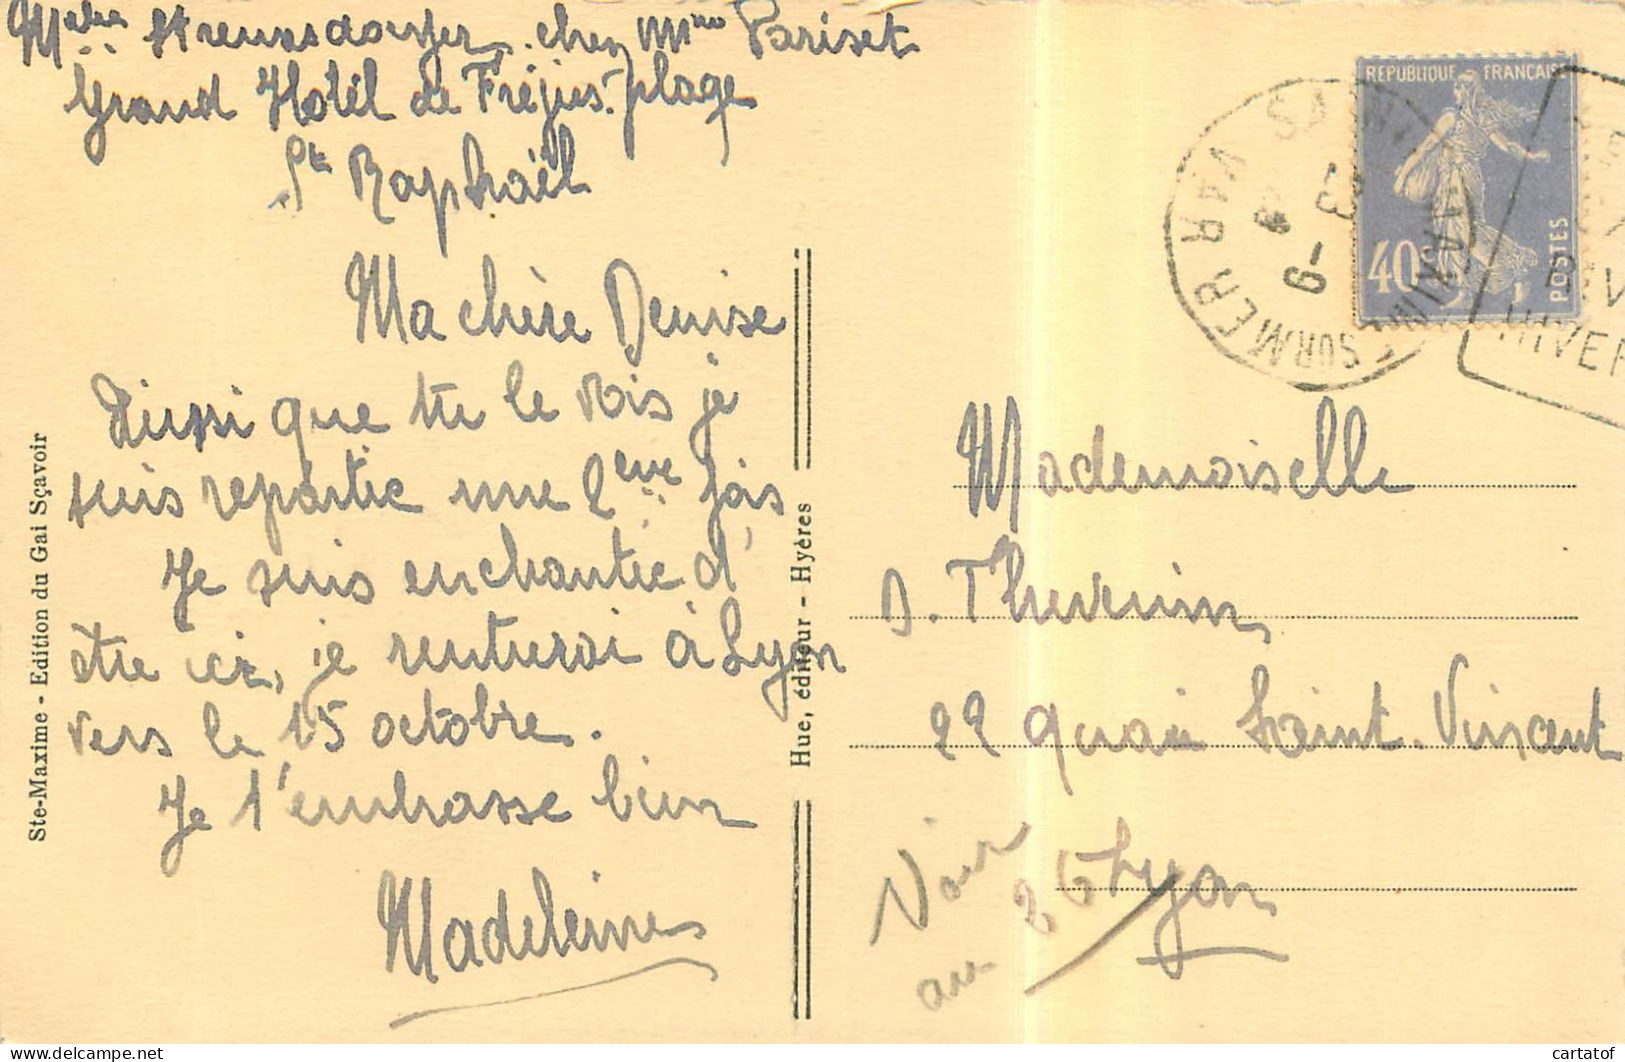 chez Mme Pariset
Grand Hotêl de Fréjus-plage
St Raphaël
Ma chère Denise
Aussi que tu le vois je
suis repartie une 2ème fois
Je suis enchantée d'
être ici, je rentrerai à Lyon
vers le 15 octobre.
Je t'embrasse bien
Madeleine
Ste-Maxime - Edition du Gai Sçavoir
Hue, éditeur - Hyères
REPUBLIQUE FRANÇAISE
40c
POSTES
SAINTE MAXIME SUR MER VAR
HIVER
Mademoiselle
D. Thevenin
22 quai Saint-Vincent
Lyon
Voir
au 26
cartatof